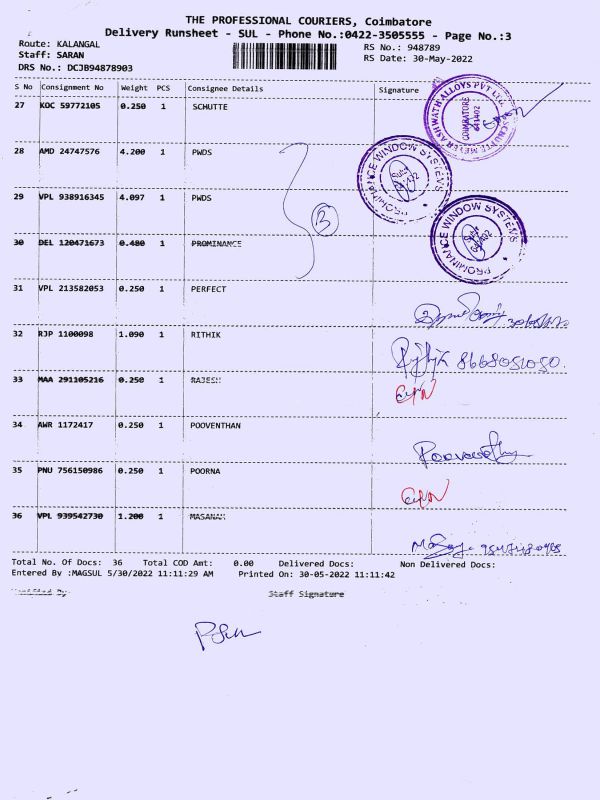 THE PROFESSIONAL COURIERS, Coimbatore
Delivery Runsheet - SUL - Phone No.:0422-3505555 - Page No.:3
Route: KALANGAL
RS No.: 948789
Staff: SARAN
RS Date: 30-May-2022
DRS No.: DCJB94878903
S No Consignment No Weight PCS Consignee Details Signature
27 KOC 59772105 0.250 1 SCHUTTE
28 AMD 24747576 4.200 1 PWDS
29 VPL 938916345 4.097 1 PWDS
3
30 DEL 120471673 0.480 1 PROMINANCE
PROMINANCE WINDOW SYSTEMS
PROMINANCE WINDOW SYSTEMS
COIMBATORE
641402
31 VPL 213582053 0.250 1 PERFECT
32 RJP 1100098 1.090 1 RITHIK
8668051050.
33 MAA 291105216 0.250 1 RAJESH
34 AWR 1172417 0.250 1 POOVENTHAN
35 PNU 756150986 0.250 1 POORNA
36 VPL 939542730 1.200 1 MASANAM
Total No. Of Docs: 36 Total COD Amt: 0.00 Delivered Docs: Non Delivered Docs:
Entered By :MAGSUL 5/30/2022 11:11:29 AM Printed On: 30-05-2022 11:11:42
Verified By
Staff Signature